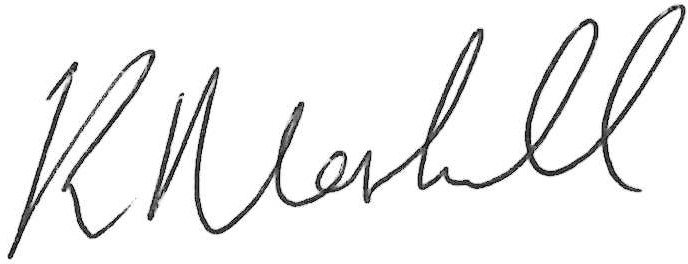 R Marshall